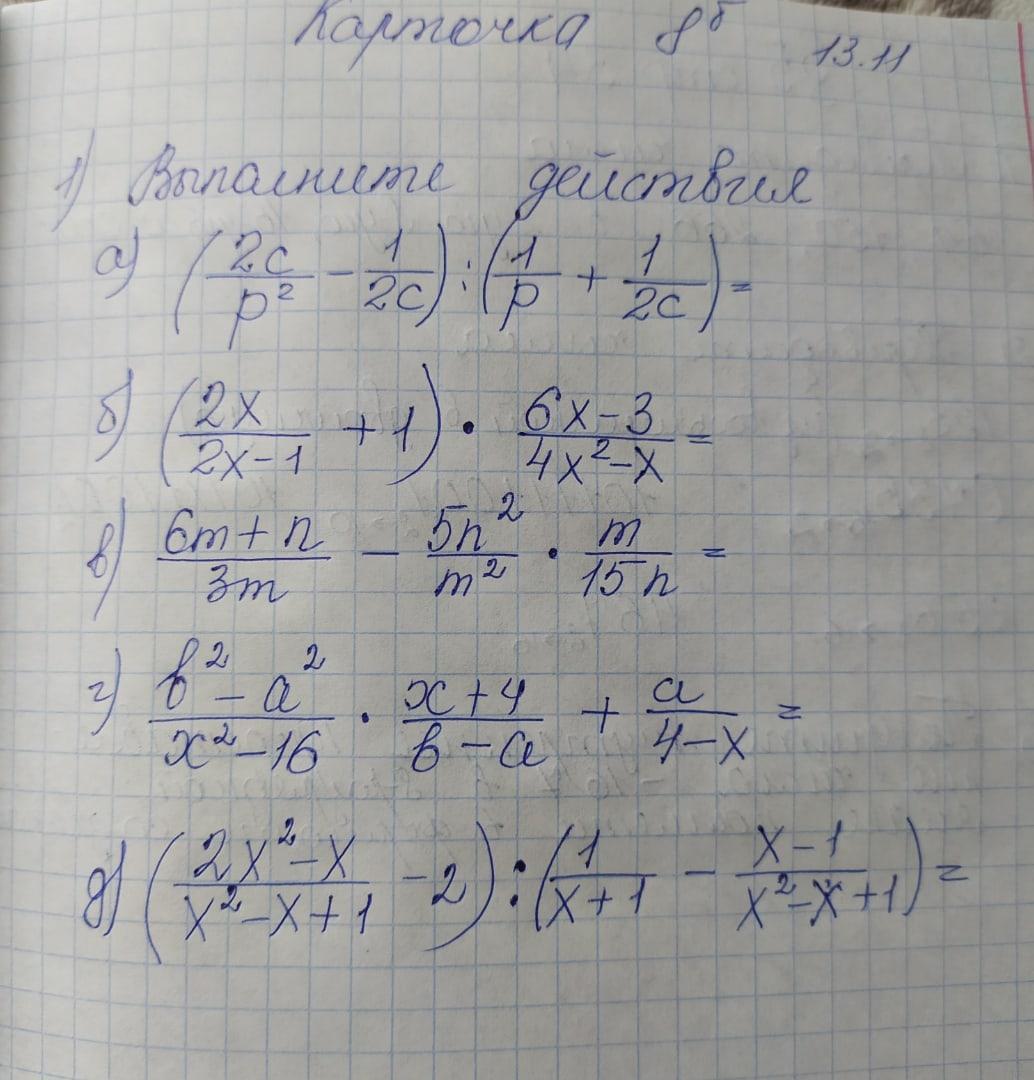 Карточка 8б 13.11
1) Выполните действия
а) (2c/p² - 1/2c) : (1/p + 1/2c) =
б) (2x/2x-1 + 1) · 6x-3/4x²-x =
в) 6m+n/3m - 5n²/m² · m/15n =
г) b²-a²/x²-16 · x+4/b-a + a/4-x =
д) (2x²-x/x²-x+1 - 2) : (1/x+1 - x-1/x²-x+1) =